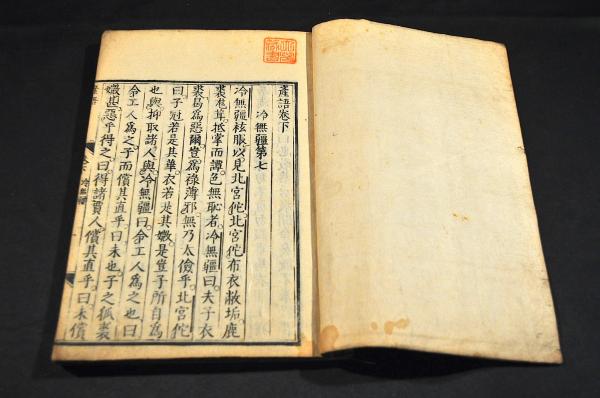 產語卷下
冷無疆第七
冷無疆袨服以見北宮佗。北宮佗布衣敝垢。鹿
裘茸抵掌而譚色無恥者。冷無疆曰夫子衣
裘曷爲惡爾。豈爲祿薄邪。無乃太儉乎。北宮佗
曰子冠若是其華。衣若是其媺。是豈子所自爲
也與。抑取諸人與。冷無疆曰。命工人爲之也。曰
命工人爲之。子而償其直乎。曰未也。子之狐裘
媺甚。惡乎得之。曰得諸賈人。償其直乎。曰未償